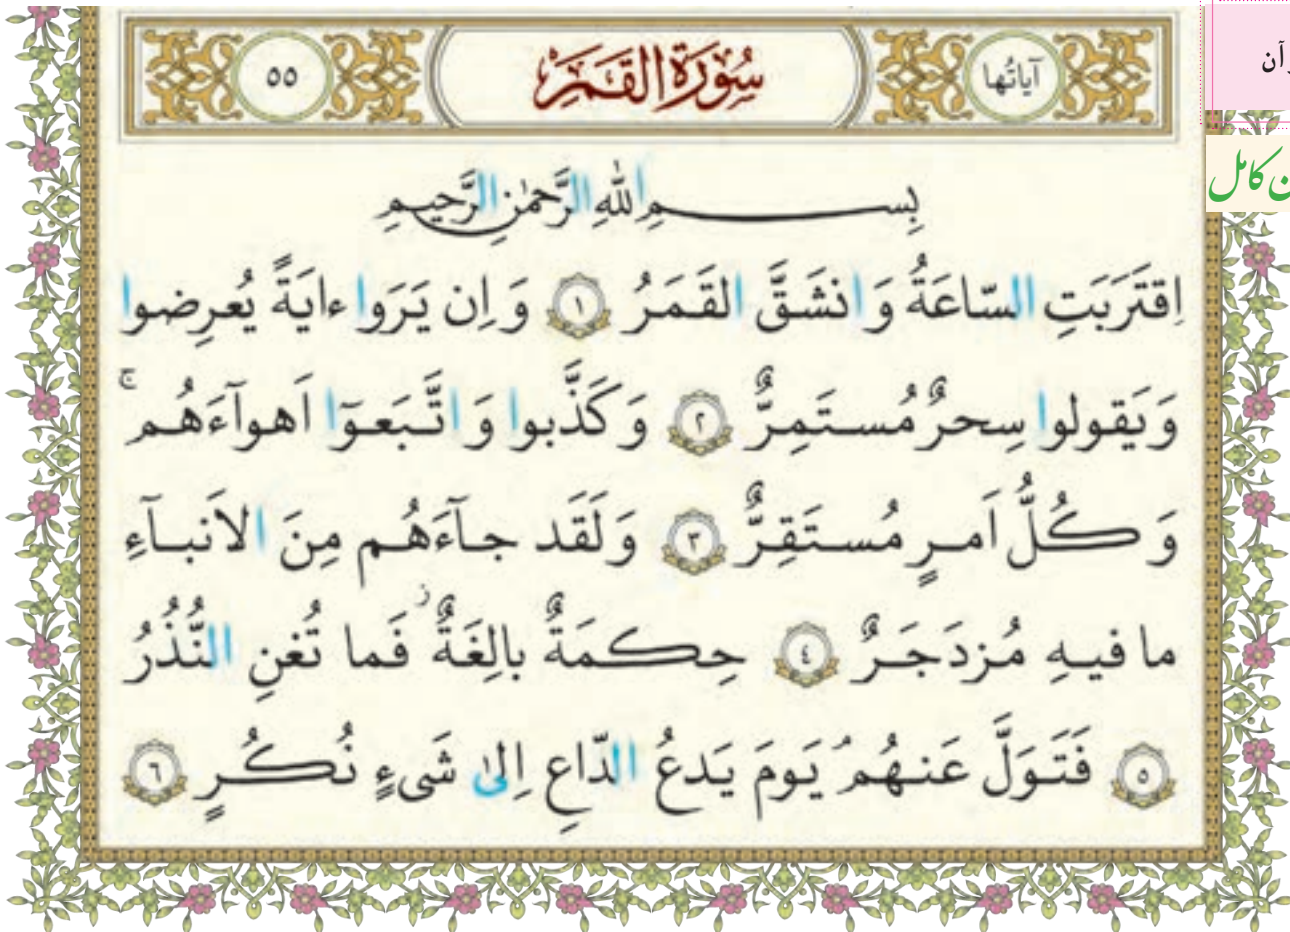 آیاتُها
سُورَةُ القَمَرِ
٥٥
بِسمِ اللهِ الرَّحمٰنِ الرَّحیمِ
اِقتَرَبَتِ السّاعَةُ وَ انشَقَّ القَمَرُ ١ وَ اِن یَرَوا ءایَةً یُعرِضوا
وَ یَقولوا سِحرٌ مُستَمِرٌّ ٢ وَ کَذَّبوا وَ اتَّبَعوٓا اَهوآءَهُم ۚ
وَ کُلُّ اَمرٍ مُستَقِرٌّ ٣ وَ لَقَد جآءَهُم مِنَ الاَنبآءِ
ما فیهِ مُزدَجَرٌ ٤ حِکمَةٌ بالِغَةٌ ز فَما تُغنِ النُّذُرُ
٥ فَتَوَلَّ عَنهُم ۘ یَومَ یَدعُ الدّاعِ اِلیٰ شَیءٍ نُکُرٍ ٦
ن کامل